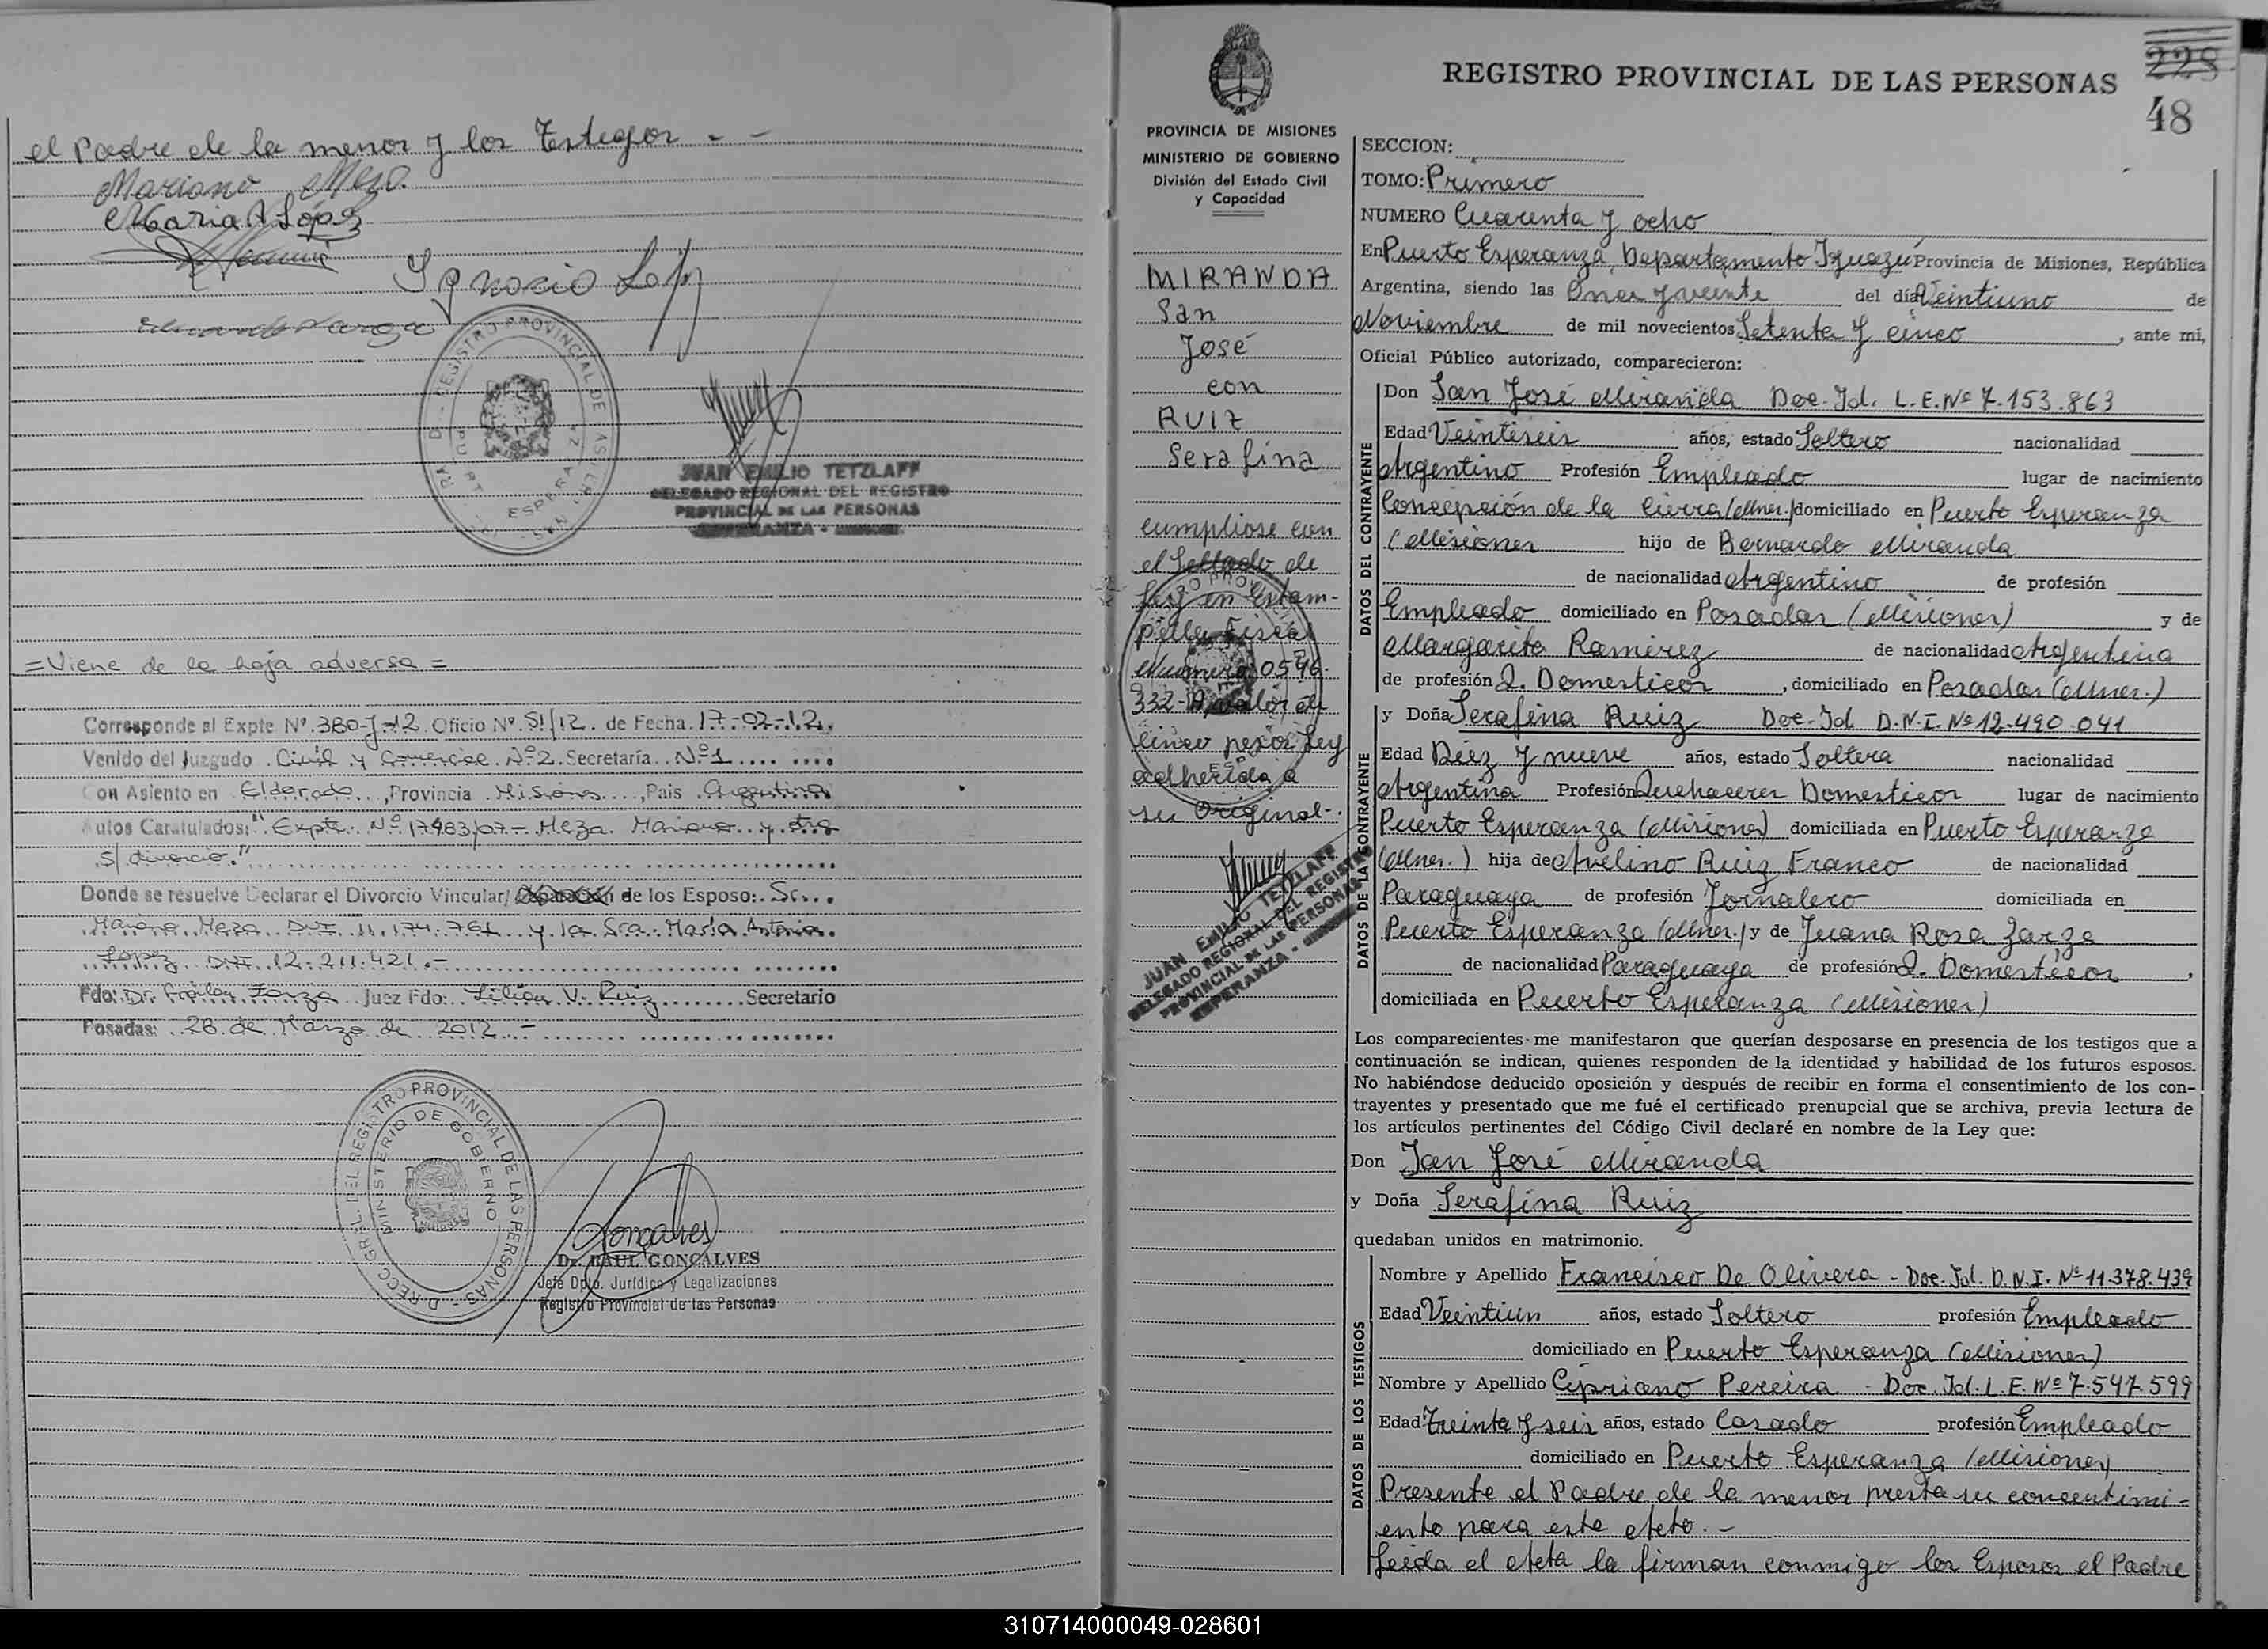 el Padre de la menor y los Testigos - -
Mariano Meza.
Maria A López
Ignacio
JUAN EMILIO TETZLAFF
DELEGADO REGIONAL DEL REGISTRO
PROVINCIAL DE LAS PERSONAS
ESPERANZA - MISIONES
= Viene de la hoja adversa =
Corresponde al Expte Nº 380-J-12 Oficio Nº 51/12. de Fecha 17-02-12.
Venido del Juzgado Civil y Comercial Nº 2. Secretaría Nº 1
Con Asiento en Eldorado, Provincia Misiones, Pais Argentina
Autos Caratulados: "Expte. Nº 17483/07.- Meza Mariano y otra
s/ divorcio."
Donde se resuelve Declarar el Divorcio Vincular/ de los Esposo: Sr.
Mariano Meza DNI 11.174.761 y la Sra. María Antonia
López DNI 12.211.421.-
Fdo: Dr. Juez Fdo: Lilian V. Ruiz Secretario
Posadas: 28 de Marzo de 2012.-
DIRECC. GRAL. DEL REGISTRO PROVINCIAL DE LAS PERSONAS
MINISTERIO DE GOBIERNO
Dr. RAUL GONCALVES
Jefe Dpto. Jurídico y Legalizaciones
Registro Provincial de las Personas
REGISTRO PROVINCIAL DE LAS PERSONAS
228
48
PROVINCIA DE MISIONES
MINISTERIO DE GOBIERNO
División del Estado Civil
y Capacidad
MIRANDA
San
José
con
RUIZ
Serafina
cumpliose con
el Sellado de
Ley en Estam-
pilla Fiscal
Número 0546
332- valor de
cinco pesos Ley
adherida a
su Original-.
JUAN EMILIO TETZLAFF
DELEGADO REGIONAL DEL REGISTRO
PROVINCIAL DE LAS PERSONAS
ESPERANZA - MISIONES
SECCION:
TOMO: Primero
NUMERO Cuarenta y ocho
En Puerto Esperanza, Departamento Iguazú Provincia de Misiones, República
Argentina, siendo las Once y veinte del día Veintiuno de
Noviembre de mil novecientos Setenta y cinco, ante mi,
Oficial Público autorizado, comparecieron:
DATOS DEL CONTRAYENTE
Don San José Miranda Doc. Id. L.E. Nº 7.153.863
Edad Veintiseis años, estado Soltero nacionalidad
Argentino Profesión Empleado lugar de nacimiento
Concepción de la Cierra (Mnes.) domiciliado en Puerto Esperanza
(Misiones hijo de Bernardo Miranda
de nacionalidad Argentino de profesión
Empleado domiciliado en Posadas (Misiones) y de
Margarita Ramirez de nacionalidad Argentina
de profesión Q. Domesticos, domiciliado en Posadas (Mnes.)
DATOS DE LA CONTRAYENTE
y Doña Serafina Ruiz Doc. Id D.N.I. Nº 12.490.041
Edad Diez y nueve años, estado Soltera nacionalidad
Argentina Profesión Quehaceres Domesticos lugar de nacimiento
Puerto Esperanza (Misiones) domiciliada en Puerto Esperanza
(Mnes.) hija de Avelino Ruiz Franco de nacionalidad
Paraguaya de profesión Jornalero domiciliada en
Puerto Esperanza (Mnes.) y de Juana Rosa Zarza
de nacionalidad Paraguaya de profesión Q. Domesticos,
domiciliada en Puerto Esperanza (Misiones)
Los comparecientes me manifestaron que querían desposarse en presencia de los testigos que a
continuación se indican, quienes responden de la identidad y habilidad de los futuros esposos.
No habiéndose deducido oposición y después de recibir en forma el consentimiento de los con-
trayentes y presentado que me fué el certificado prenupcial que se archiva, previa lectura de
los artículos pertinentes del Código Civil declaré en nombre de la Ley que:
Don San José Miranda
y Doña Serafina Ruiz
quedaban unidos en matrimonio.
DATOS DE LOS TESTIGOS
Nombre y Apellido Francisco De Olivera - Doc. Id. D.N.I. Nº 11.378.439
Edad Veintiun años, estado Soltero profesión Empleado
domiciliado en Puerto Esperanza (Misiones)
Nombre y Apellido Cipriano Pereira - Doc. Id. L.E. Nº 7.547.599
Edad Treinta y seis años, estado Casado profesión Empleado
domiciliado en Puerto Esperanza (Misiones)
Presente el Padre de la menor presta su concentimi-
ento para este Acto.-
Leida el Acta la firman conmigo los Esposos el Padre
310714000049-028601